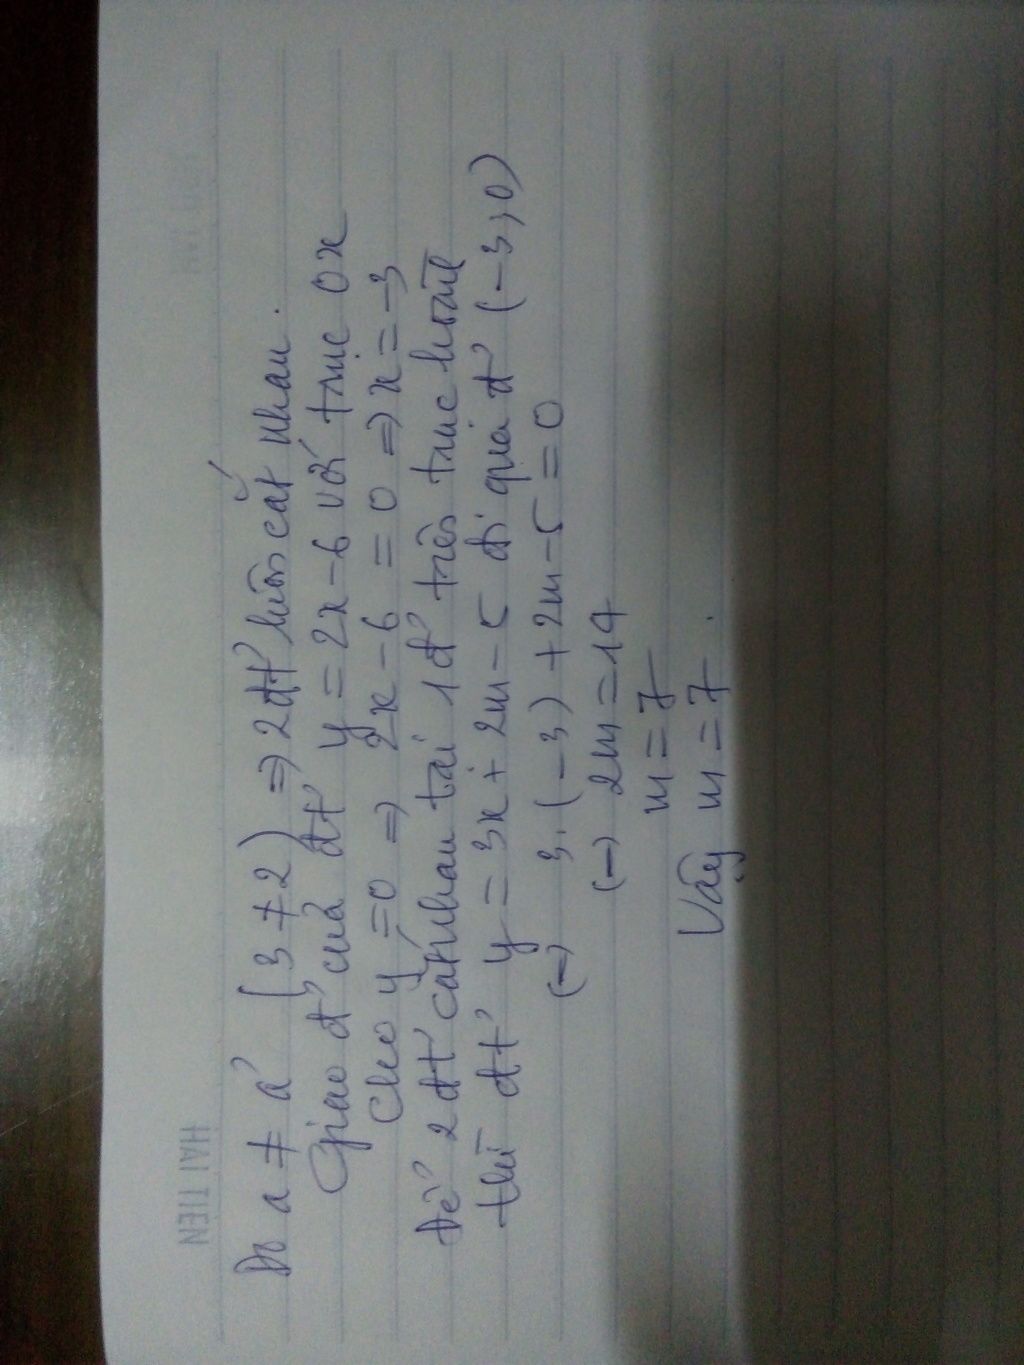 HẢI TIẾN
Do a ≠ a' (3 ≠ 2) => 2 đt' luôn cắt nhau.
Giao đ' của đt' y = 2x - 6 với trục Ox
Cho y = 0 => 2x - 6 = 0 => x = -3
Để 2 đt' cắt nhau tại 1 đ' trên trục hoành
thì đt' y = 3x + 2m - 5 đi qua đ' (-3; 0)
(=) 3.(-3) + 2m - 5 = 0
(=) 2m = 14
m = 7
Vậy m = 7.